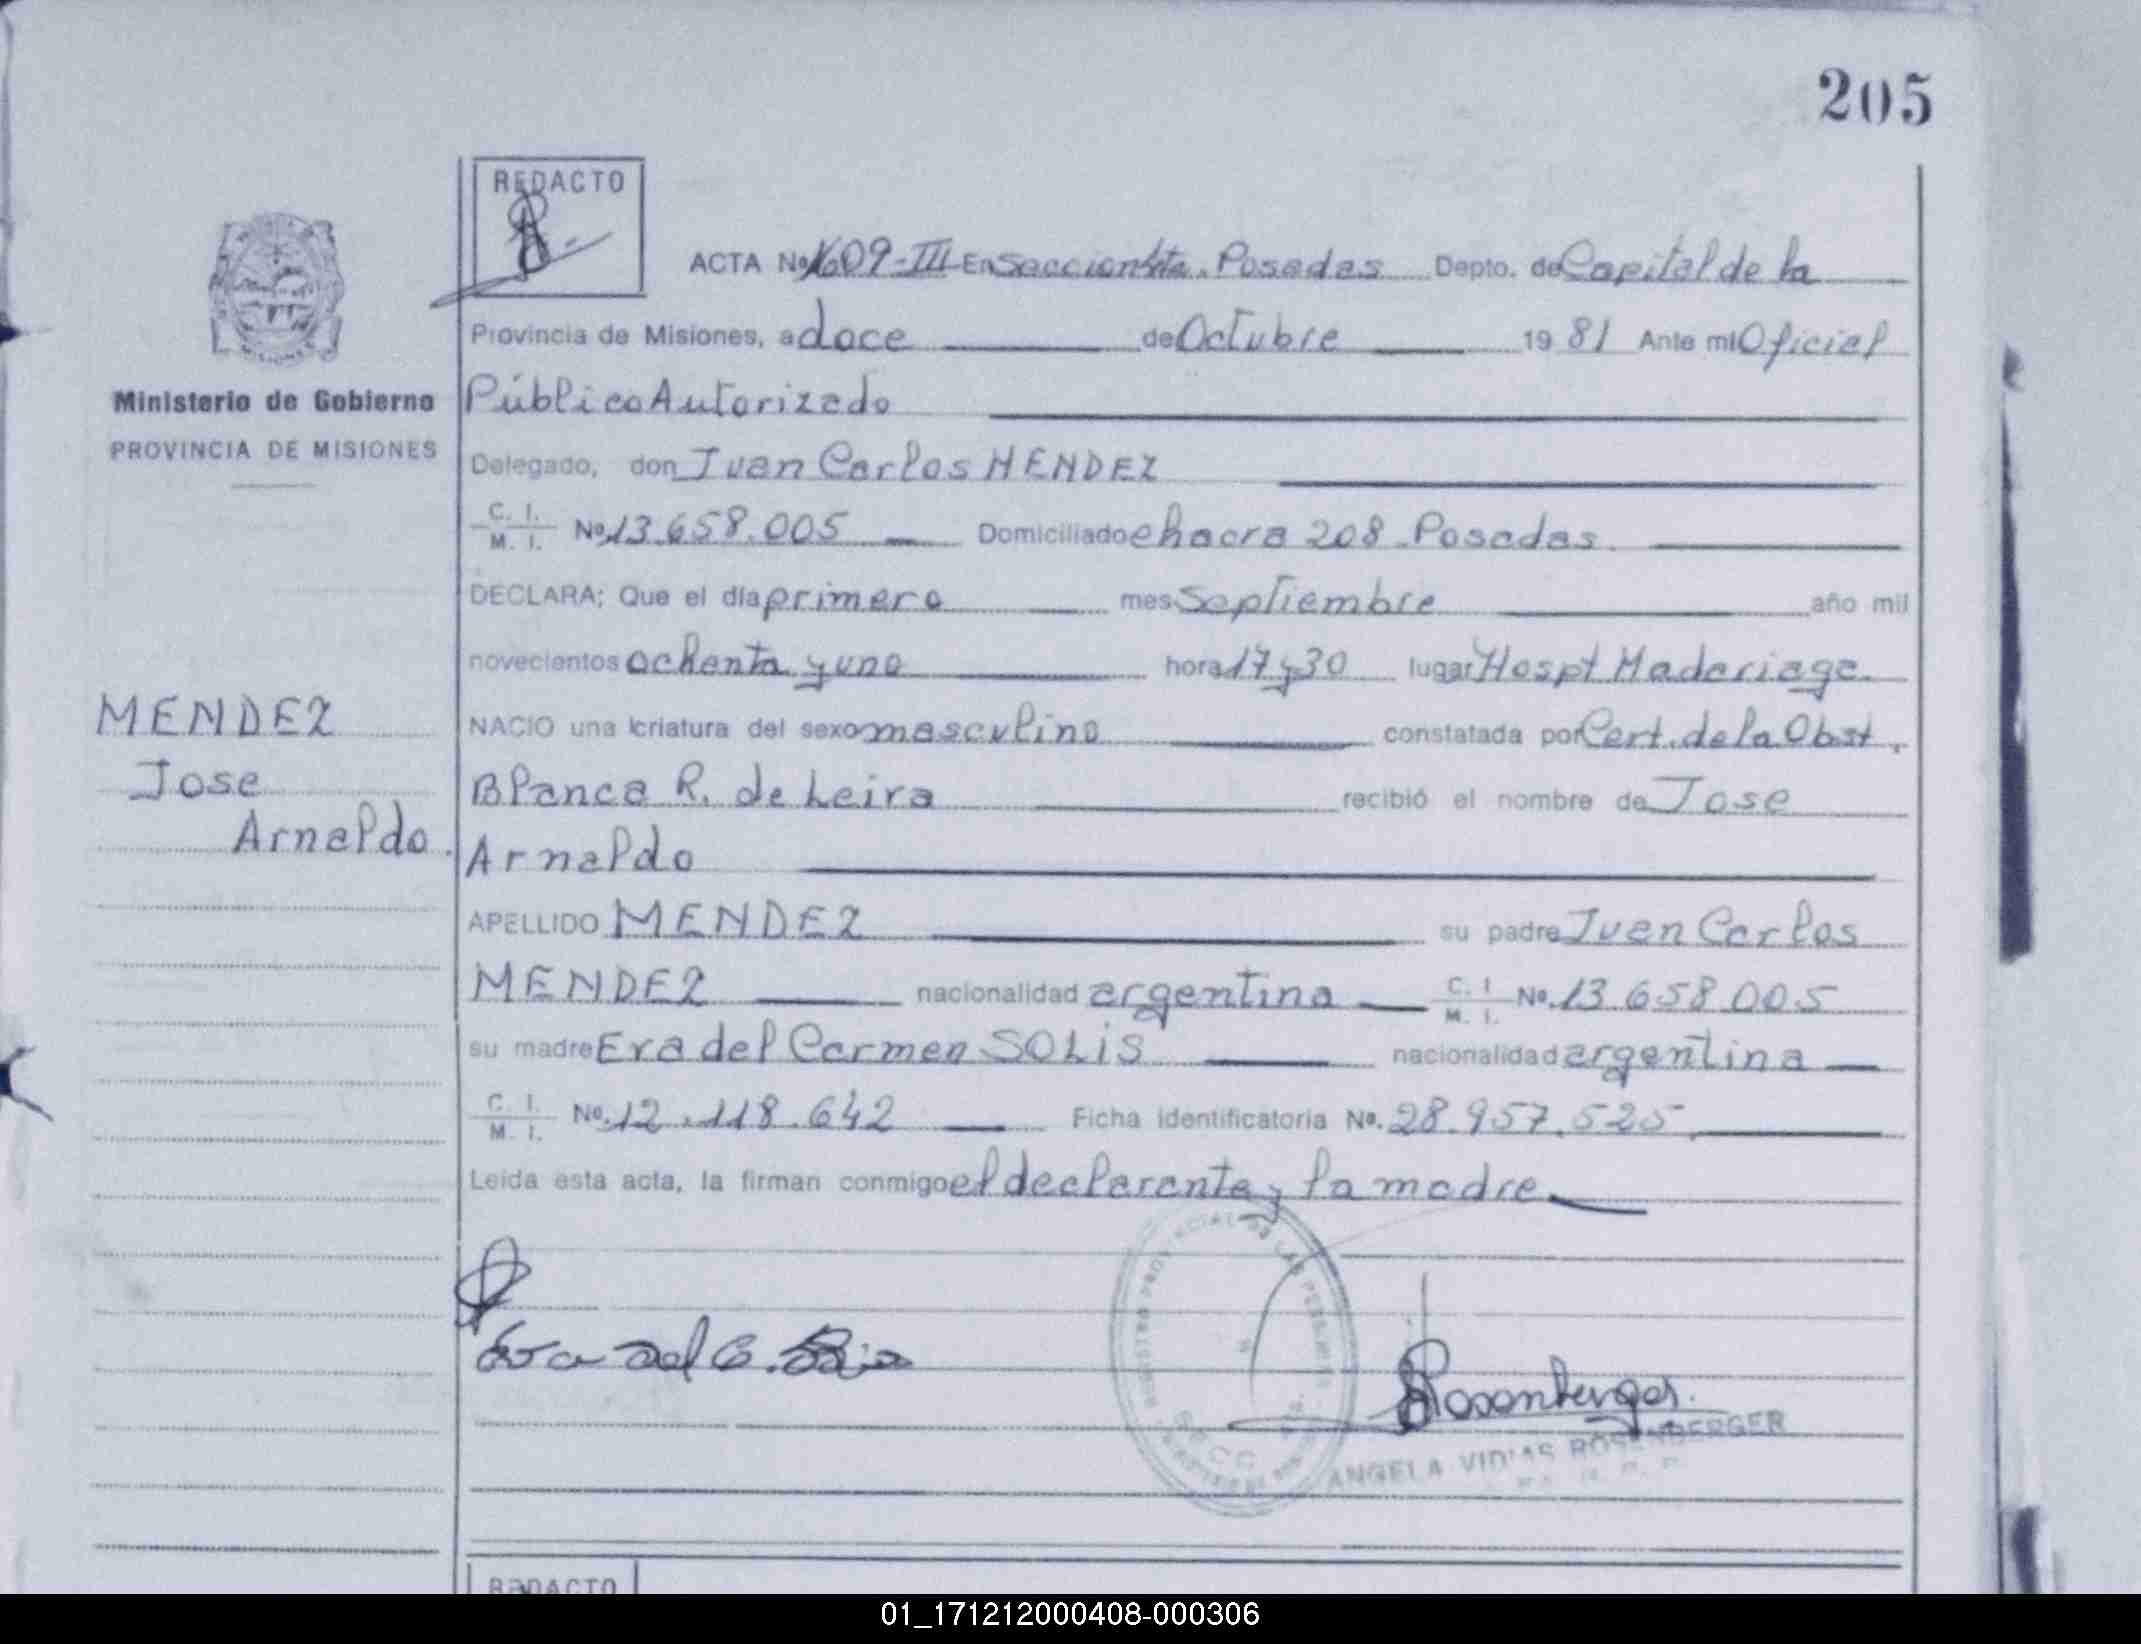 205
REDACTO
ACTA No. 1609-III En Seccion 5ta. Posadas Depto. de Capital de la
Provincia de Misiones, a doce de Octubre 19 81 Ante mi Oficial
Ministerio de Gobierno
PROVINCIA DE MISIONES
Público Autorizado
Delegado, don Juan Carlos MENDEZ
C. I.
M. I. No. 13.658.005 Domiciliado chacra 208 - Posadas.
DECLARA; Que el día primero mes Septiembre año mil
novecientos ochenta y uno hora 17 y 30 lugar Hospt Madariaga.
MENDEZ
Jose
Arnaldo.
NACIO una criatura del sexo masculino constatada por Cert. de la Obst.
Blanca R. de Leira recibió el nombre de Jose
Arnaldo
APELLIDO MENDEZ su padre Juan Carlos
MENDEZ nacionalidad argentina C. I.
M. I. No. 13.658.005
su madre Eva del Carmen SOLIS nacionalidad argentina
C. I.
M. I. No. 12.118.642 Ficha identificatoria No. 28.957.525
Leída esta acta, la firman conmigo el declarante y la madre
Eva del C. Solis
Rosenberger.
ANGELA ROSENBERGER
REDACTO
01_171212000408-000306